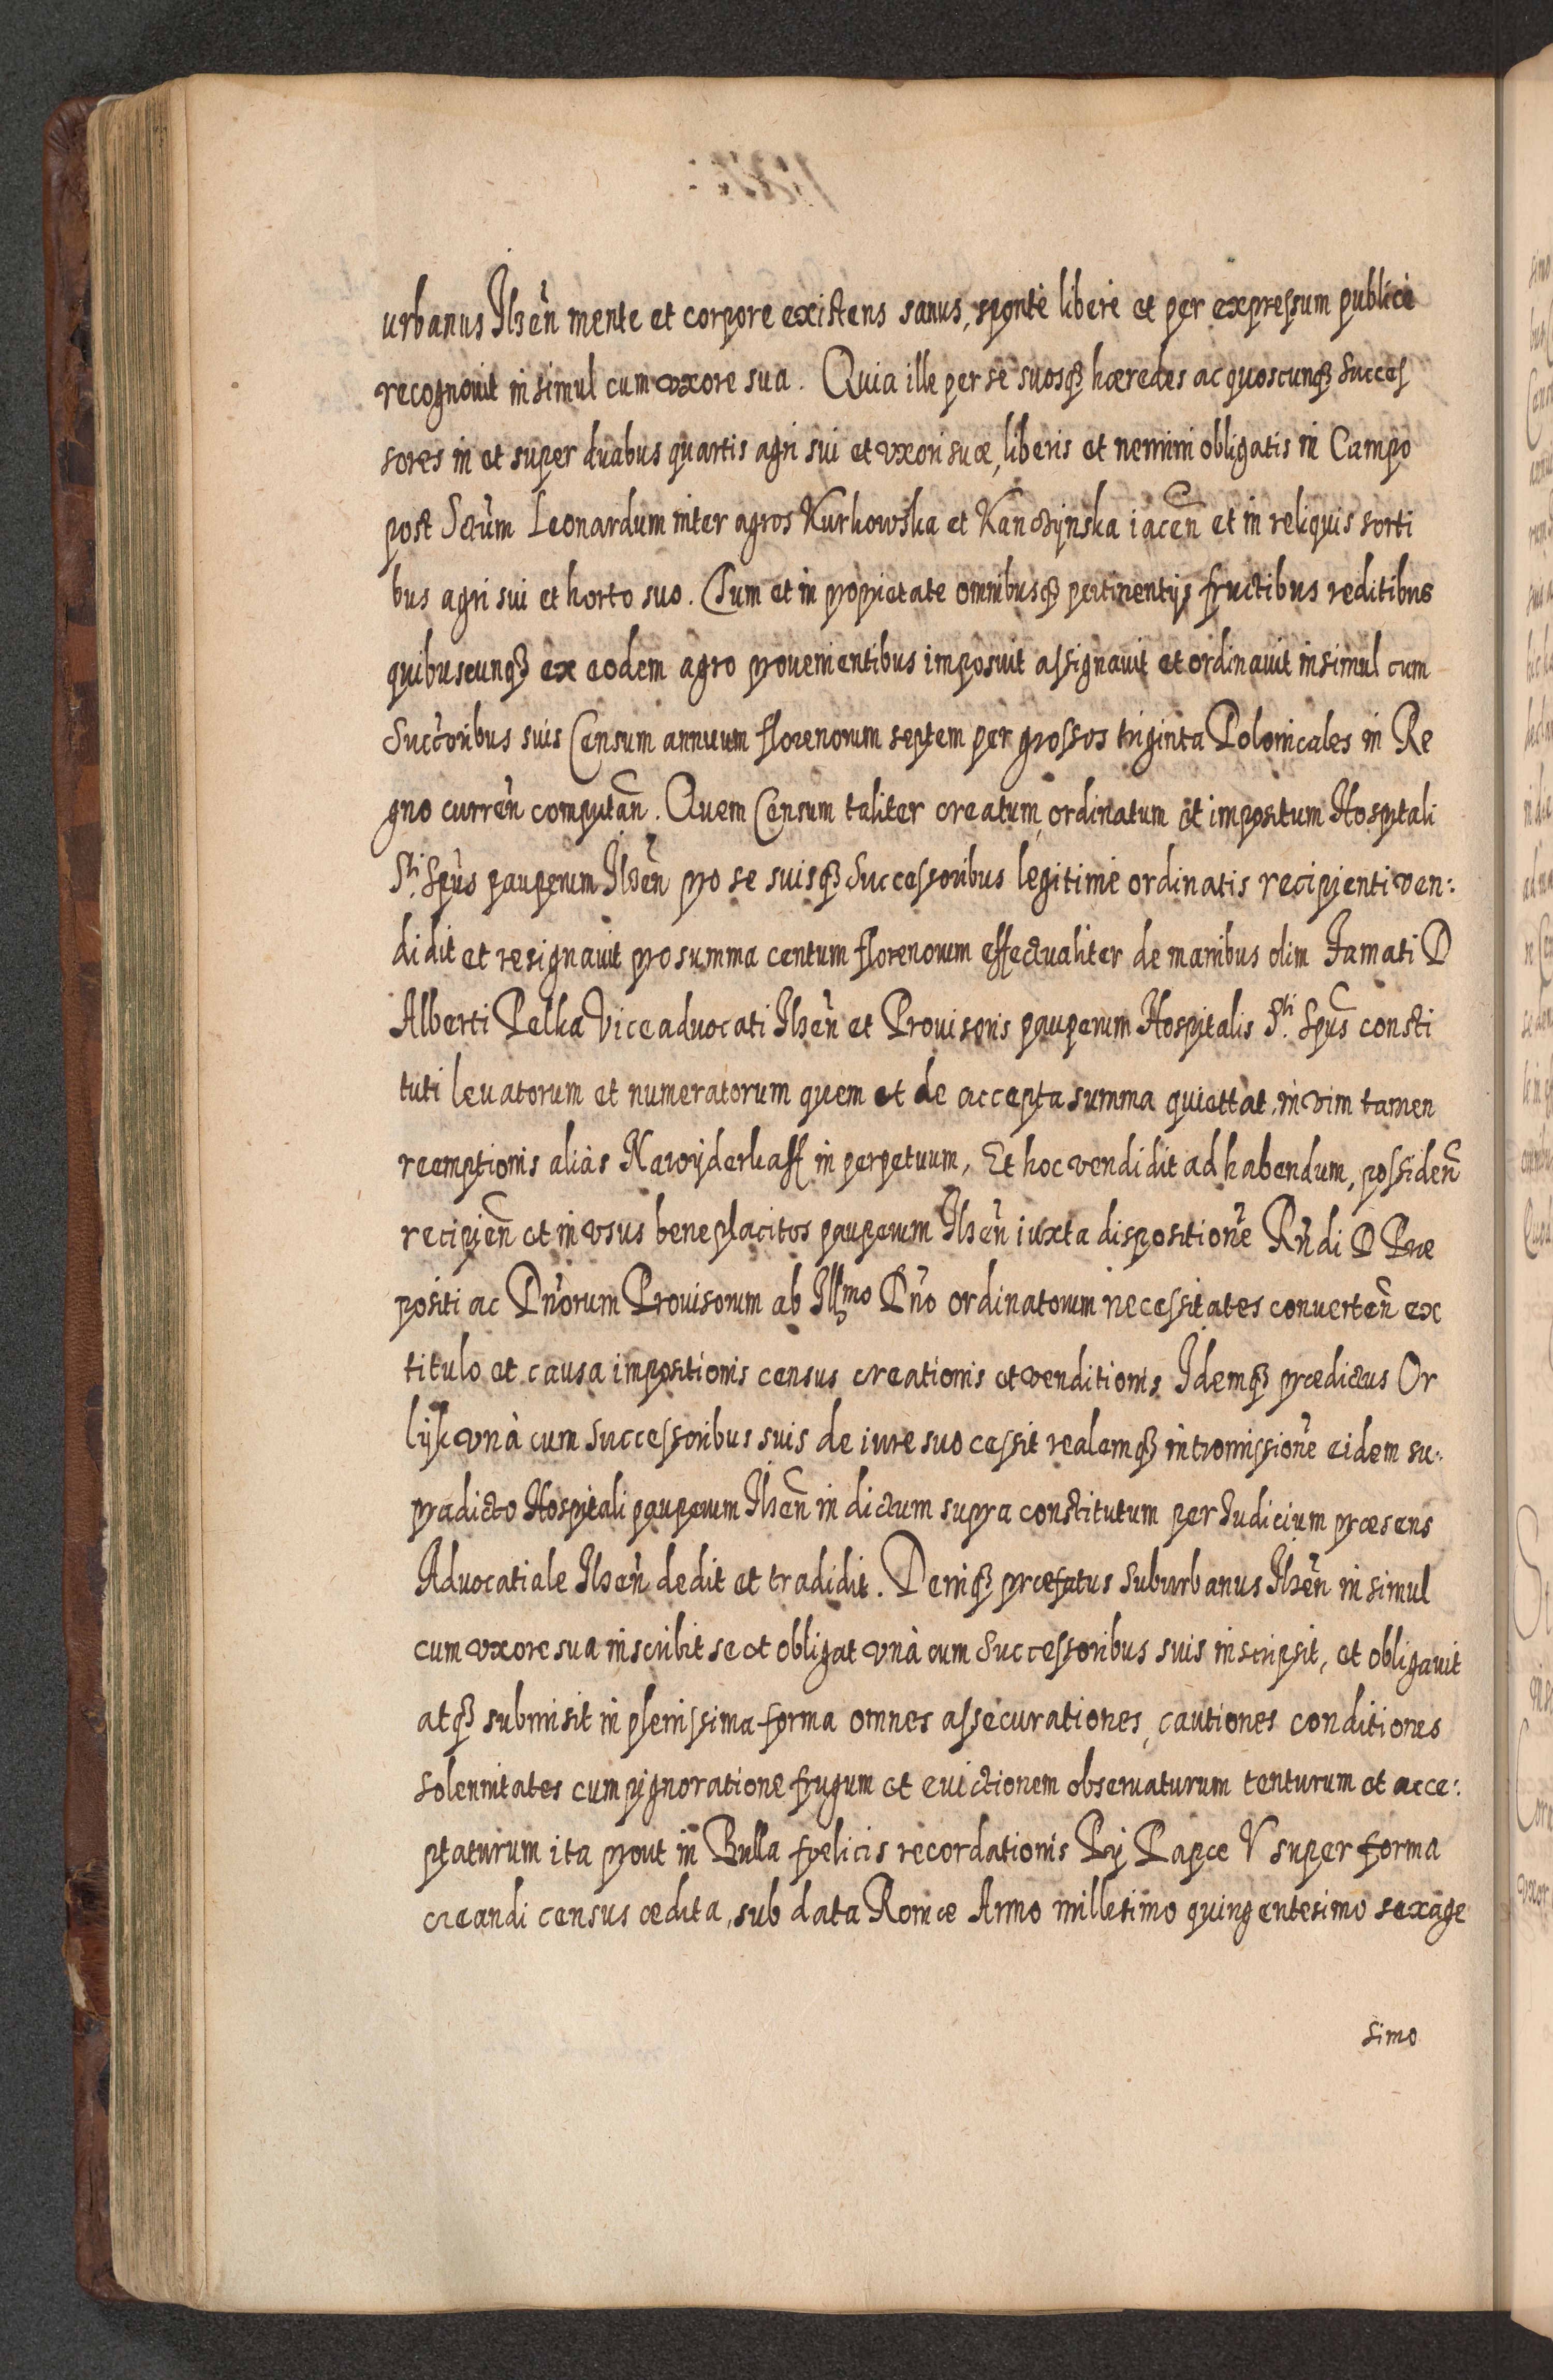 urbanus Ilzen̄ mente et corpore existens sanus, spontè liberè et per expressum publicè
recognouit in simul cum vxore sua. Quia ille per se suosq₃ hæredes ac quoscunq₃ Succes
sores in et super duabus quartis agri sui et vxori suæ, liberis et nemini obligatis in Campo
post Sctūm Leonardum inter agros Kurkowska et Kanczÿnska iacen̄ et in reliquis sorti
bus agri sui et horto suo. Tum et in proprietate omnibusq₃ pertinentijs fructibus reditibus
quibuscunq₃ ex eodem agro prouenientibus imposuit assignauit et ordinauit in simul cum
Succōribus suis Censum annuum florenorum septem per grossos triginta Polonicales in Re
gno curren̄ computan̄. Quem Censum taliter creatum, ordinatum et impositum Hospitali
Sti. Spūs pauperum Ilzen̄ pro se suisq₃ Successoribus legitimè ordinatis recipienti ven:
didit et resignauit pro summa centum florenorum effectualiter de manibus olim Famati D
Alberti Pelka Viceaduocati Ilzen̄ et Prouisoris pauperum Hospitalis Sti. Spūs consti
tuti leuatorum et numeratorum quem et de accepta summa quiettat, in vim tamen
reemptionis aliàs Nawÿderkaff in perpetuum, Et hoc vendidit ad habendum, possiden̄
recipien̄ et in vsus beneplacitos pauperum Ilzen̄ iuxta dispositionē Rn̄di D Præ
positi ac Dn̄orum Prouisorum ab Illmo Dn̄o ordinatorum necessitates conuerten̄ ex
titulo et causa impositionis census creationis et venditionis. Idemq₃ prædictus Or
lÿk vnà cum Successoribus suis de iure suo cessit realemq₃ intromissionē eidem su:
pradicto Hospitali pauperum Ilzen̄ in dictum supra constitutum per Iudicium præsens
Aduocatiale Ilzen̄ dedit et tradidit. Deniq₃ præfatus Suburbanus Ilzen̄ in simul
cum vxore sua inscribit se et obligat vnà cum Successoribus suis inscripsit, et obligauit
atq₃ submisit in plenissima forma omnes assecurationes, cautiones conditiones
solennitates cum pignoratione frugum et euictionem obseruaturum tenturum et acce:
ptaturum ita prout in Bulla fœlicis recordationis Pij Papæ V super forma
creandi census ædita, sub data Romæ Anno millesimo quingentesimo sexage
simo